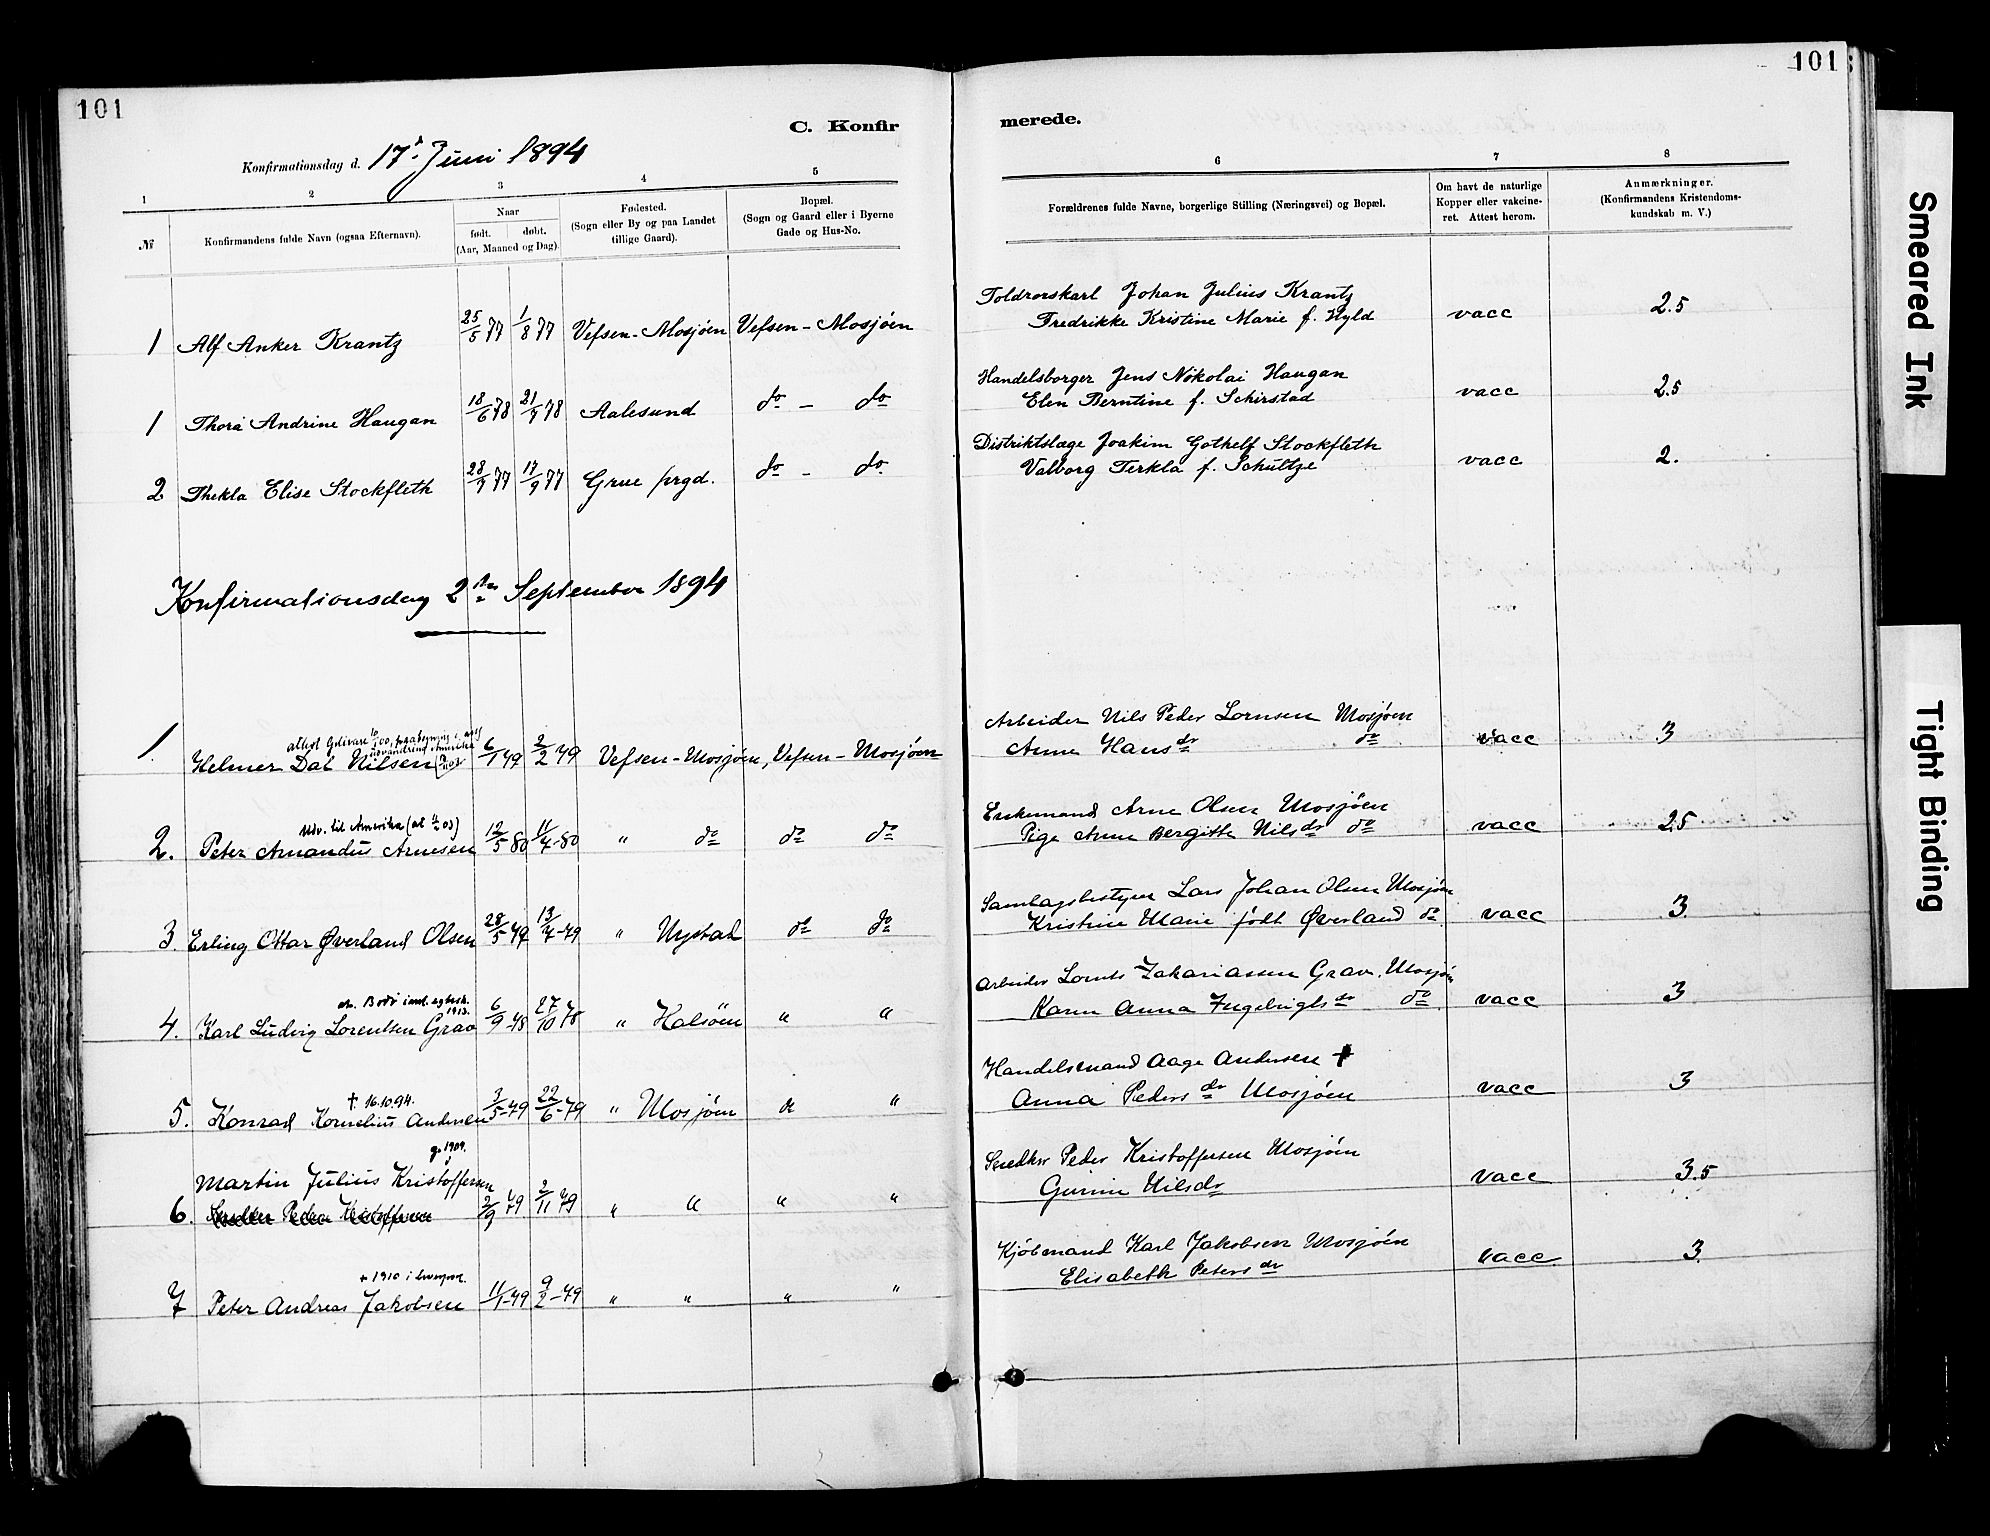 101
101
C. Konfirmerede.
Konfirmationsdag d. 17de Juni 1894
1 2 3 4 5 6 7 8
№ Konfirmandens fulde Navn (ogsaa Efternavn). Naar født. døbt. (Aar, Maaned og Dag). Fødested. (Sogn eller By og paa Landet tillige Gaard). Bopæl. (Sogn og Gaard eller i Byerne Gade og Hus-No. Forældrenes fulde Navne, borgerlige Stilling (Næringsvei) og Bopæl. Om havt de naturlige Kopper eller vakcineret. Attest herom. Anmærkninger. (Konfirmandens Kristendomskundskab m. V.)
1 Alf Anker Krantz 25/5 77 1/8 77 Vefsen-Mosjöen Vefsen-Mosjöen Toldrorskarl Johan Julius Krantz
Fredrikke Kristine Marie f. Hyld vacc 2.5
1 Thora Andrine Haugan 18/6 78 21/7 78 Aalesund do - do Handelsborger Jens Nikolai Haugan
Elen Berntine f. Schirstad vacc 2.5
2 Thekla Elise Stockfleth 28/7 77 17/9 77 Grue prgd. do - do Distriktslæge Joakim Gothelf Stockfleth
Valborg Terkla f. Schültze vacc 2.
Konfirmationsdag 2den September 1894
attest Gelivare
1 Helmer Dal Nilsen 6/1 79 2/2 79 Vefsen-Mosjöen, Vefsen-Mosjöen Arbeider Nils Peder Lornsen Mosjöen
Anne Hansdr do vacc 3
Udv. til Amerika
2. Peter Amandus Arnesen 12/5 80 11/7-80 " do do do Enkemand Arne Olsen Mosjöen
Pige Anne Bergitte Nilsdr do vacc 2.5
3 Erling Ottar Øverland Olsen 28/5 79 13/7-79 " Nystad do do Samlagsbestyrer Lars Johan Olsen Mosjöen
Kristine Marie födt Øverland do vacc 3
1913.
4. Karl Ludvig Lorentsen Grav 6/9-78 27/10 78 " Halsöen " " Arbeider Lornts Zakariassen Grav. Mosjöen
Karen Anna Ingebrigtsdr do vacc 3
† 16.10.94.
5. Konrad Kornelius Andersen 3/5-79 22/6-79 " Mosjöen " " Handelsmand Aage Andersen †
Anna Pedersdr Mosjöen vacc 3
g. 1909.
6. Martin Julius Kristoffersen 2/9 79 2/11 79 " " " " Snedker Peder Kristoffersen Mosjöen
Snedker Peder Kristoffersen Gurine Nilsdr vacc 3.5
+ 1910 i Liverpool.
7 Peter Andreas Jakobsen 11/1-79 9/2-79 " " " " Kjöbmand Karl Jakobsen Mosjöen
Elisabeth Petersdr vacc 3
Smeared Ink
Tight Binding